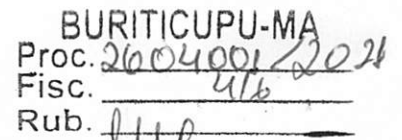 BURITICUPU-MA
Proc. 2604001/2021
Fisc. 416
Rub.